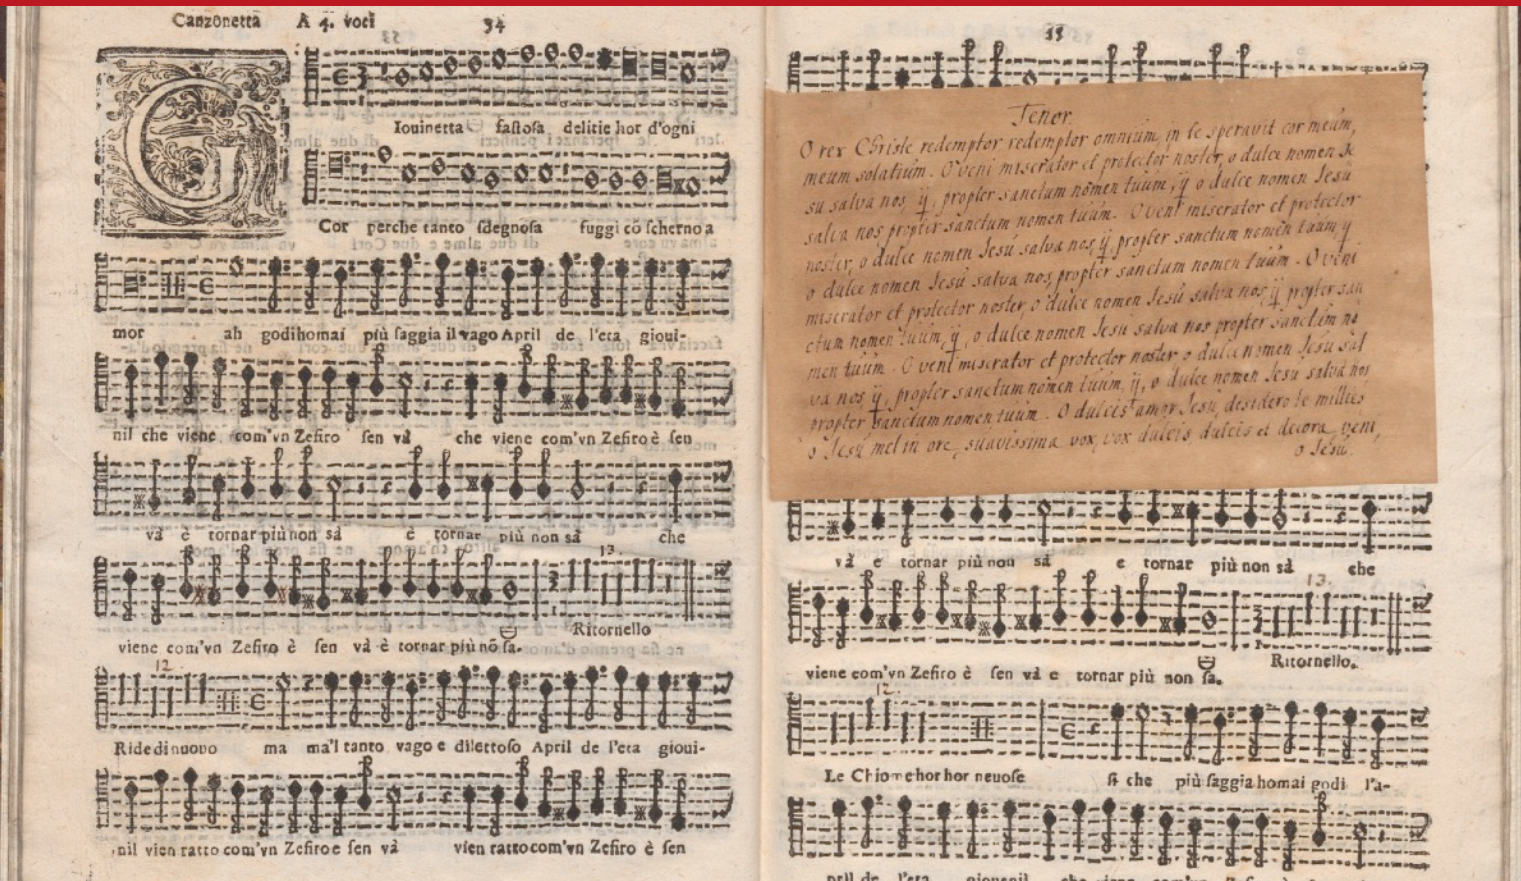 Canzonetta A 4. voci 34
Iouinetta fastosa delitie hor d'ogni
Cor perche tanto sdegnosa fuggi cō scherno a
mor ah godi homai più saggia il vago April de l'eta gioui-
nil che viene com'vn Zefiro sen và che viene com'vn Zefiro è sen
và è tornar più non sà è tornar più non sà che
13.
viene com'vn Zefiro è sen và è tornar più nō sa. Ritornello
12.
Ride di nuovo ma ma'l tanto vago e dilettoso April de l'eta gioui-
nil vien ratto com'vn Zefiro e sen và vien ratto com'vn Zefiro è sen
Tenor.
O rex Christe redemptor redemptor omnium, in te speravit cor meum,
meum solatium. O veni miserator et protector noster, o dulce nomen Je
su salva nos, ij, propter sanctum nomen tuum, ij o dulce nomen Jesu
salva nos propter sanctum nomen tuum. O veni miserator et protector
noster, o dulce nomen Jesu salva nos ij, propter sanctum nomen tuum, ij
o dulce nomen Jesu salva nos, propter sanctum nomen tuum. O veni
miserator et protector noster, o dulce nomen Jesu salva nos ij propter san
ctum nomen tuum, ij, o dulce nomen Jesu salva nos propter sanctum no
men tuum. O veni miserator et protector noster o dulce nomen Jesu sal
va nos ij, propter sanctum nomen tuum, ij, o dulce nomen Jesu salva nos
propter sanctum nomen tuum. O dulcis amor Jesu, desidero te millies
o Jesu mel in ore, suavissima vox, vox dulcis dulcis et decora, veni,
o Jesu.
và e tornar più non sà e tornar più non sà che
13.
viene com'vn Zefiro è sen và e tornar più non sa. Ritornello.
12.
Le Chiome hor hor neuose si che più saggia homai godi l'a-
pril de l'eta giouenil che viene com'vn